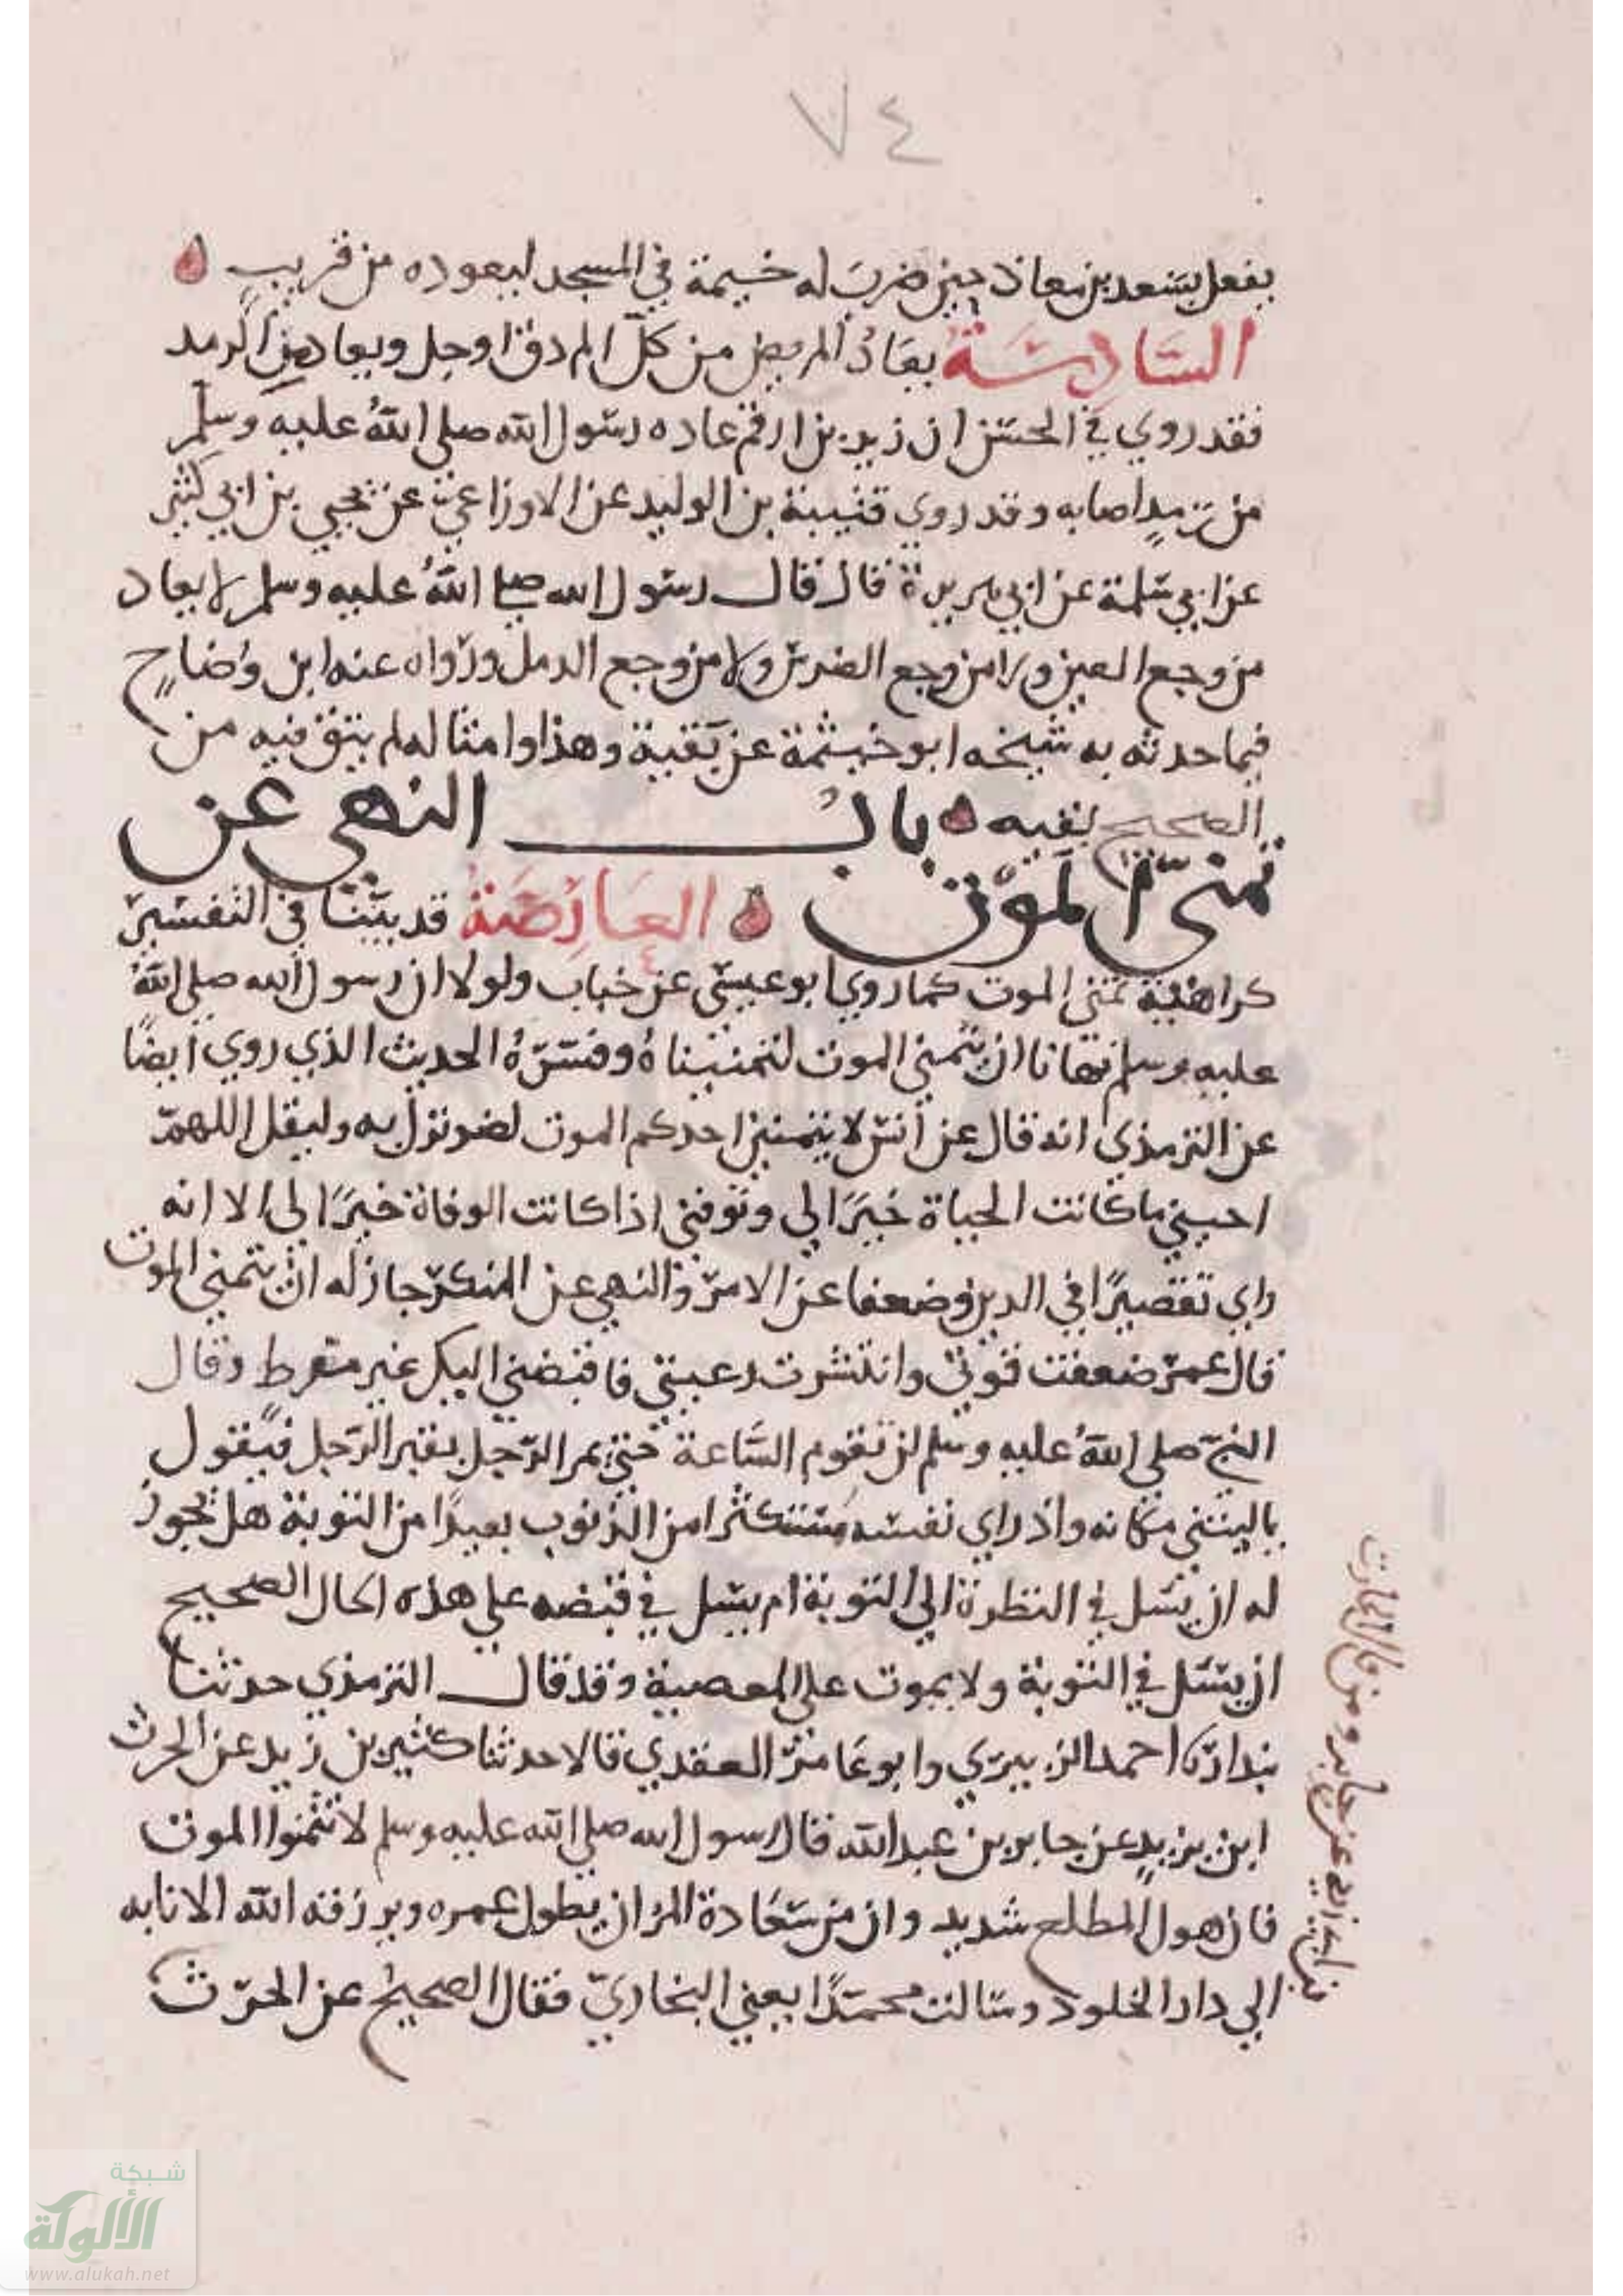 ٧٤
بفعل بسعد بن معاذ حين ضرب له خيمة في المسجد ليعوده من قريب
السَّادِسَةُ يعَادُ المريض من كلّ الم دق او جل ويعاد من الرمد
فقد روي في الحسن ان زيد بن ارقم عاده رسول الله صلى اللهُ عليه وسلم
من رمدٍ اصابه وقد روي قتيبة بن الوليد عن الاوزاعي عن يحيي بن ابي كثير
عن ابي سلمة عن ابي هريرة قال قال رسول الله صلى اللهُ عليه وسلم لا يعاد
من وجع العين ولا من وجع الضرس ولا من وجع الدمل ورواه عنه ابن وضاحٍ
فيما حدثه به شيخه ابو خيثمة عن بقية وهذا وامثاله لم يتق فيه من
الصحيح بقيه بابُ النهي عن
تمنيّ المَوْت العَارِضَةُ قد بيّنا في التفسير
كراهية تمني الموت كما روي ابو عيسى عن خباب ولولا ان رسول الله صلى اللهُ
عليه وسلم نهانا ان نتمني الموت لتمنيناهُ وفسّرهُ الحديث الذي روي أيضًا
عن الترمذي انه قال عن أنس لا يتمنين احدكم الموت لضر نزل به وليقل اللهمّ
احييني ما كانت الحياة خيرًا لي وتوفني اذا كانت الوفاة خيرًا لي الا انه
راي تقصيرًا في الدين وضعفا عن الامر والنهي عن المنكر جاز له ان يتمني الموت
قال عمر ضعفت قوتي وانتشرت رعيتي فاقبضني اليك غير مفرط وقال
النبي صلى اللهُ عليه وسلم لن تقوم السَّاعة حتى يمر الرّجل بقبر الرَجل فيقول
ياليتني مكانه واذ راي نفسه مستكثرا من الذنوب بعيدًا من التوبة هل يجوز
له ان يسل في النظرة الي التوبة ام يسل في قبضه علي هذه الحال الصحيح
ان يسل في التوبة ولا يموت على المعصية وقد قال الترمذي حدثنا
بندار احمد الزبيري وابو عامر العقدي قالا حدثنا كثير بن زيد عن الحرث
ابن يزيدٍ عن جابر بن عبد الله قال رسول الله صلى الله عليه وسلم لا تتمنوا الموت
فان هول المطلع شديد وان من سعَادة المر ان يطول عمره ويرزقه الله الانابه
الي دار الخلود وسالت محمدًا يعني البخاري فقال الصحيح عن الحرث
شبكة
الألوكة
www.alukah.net